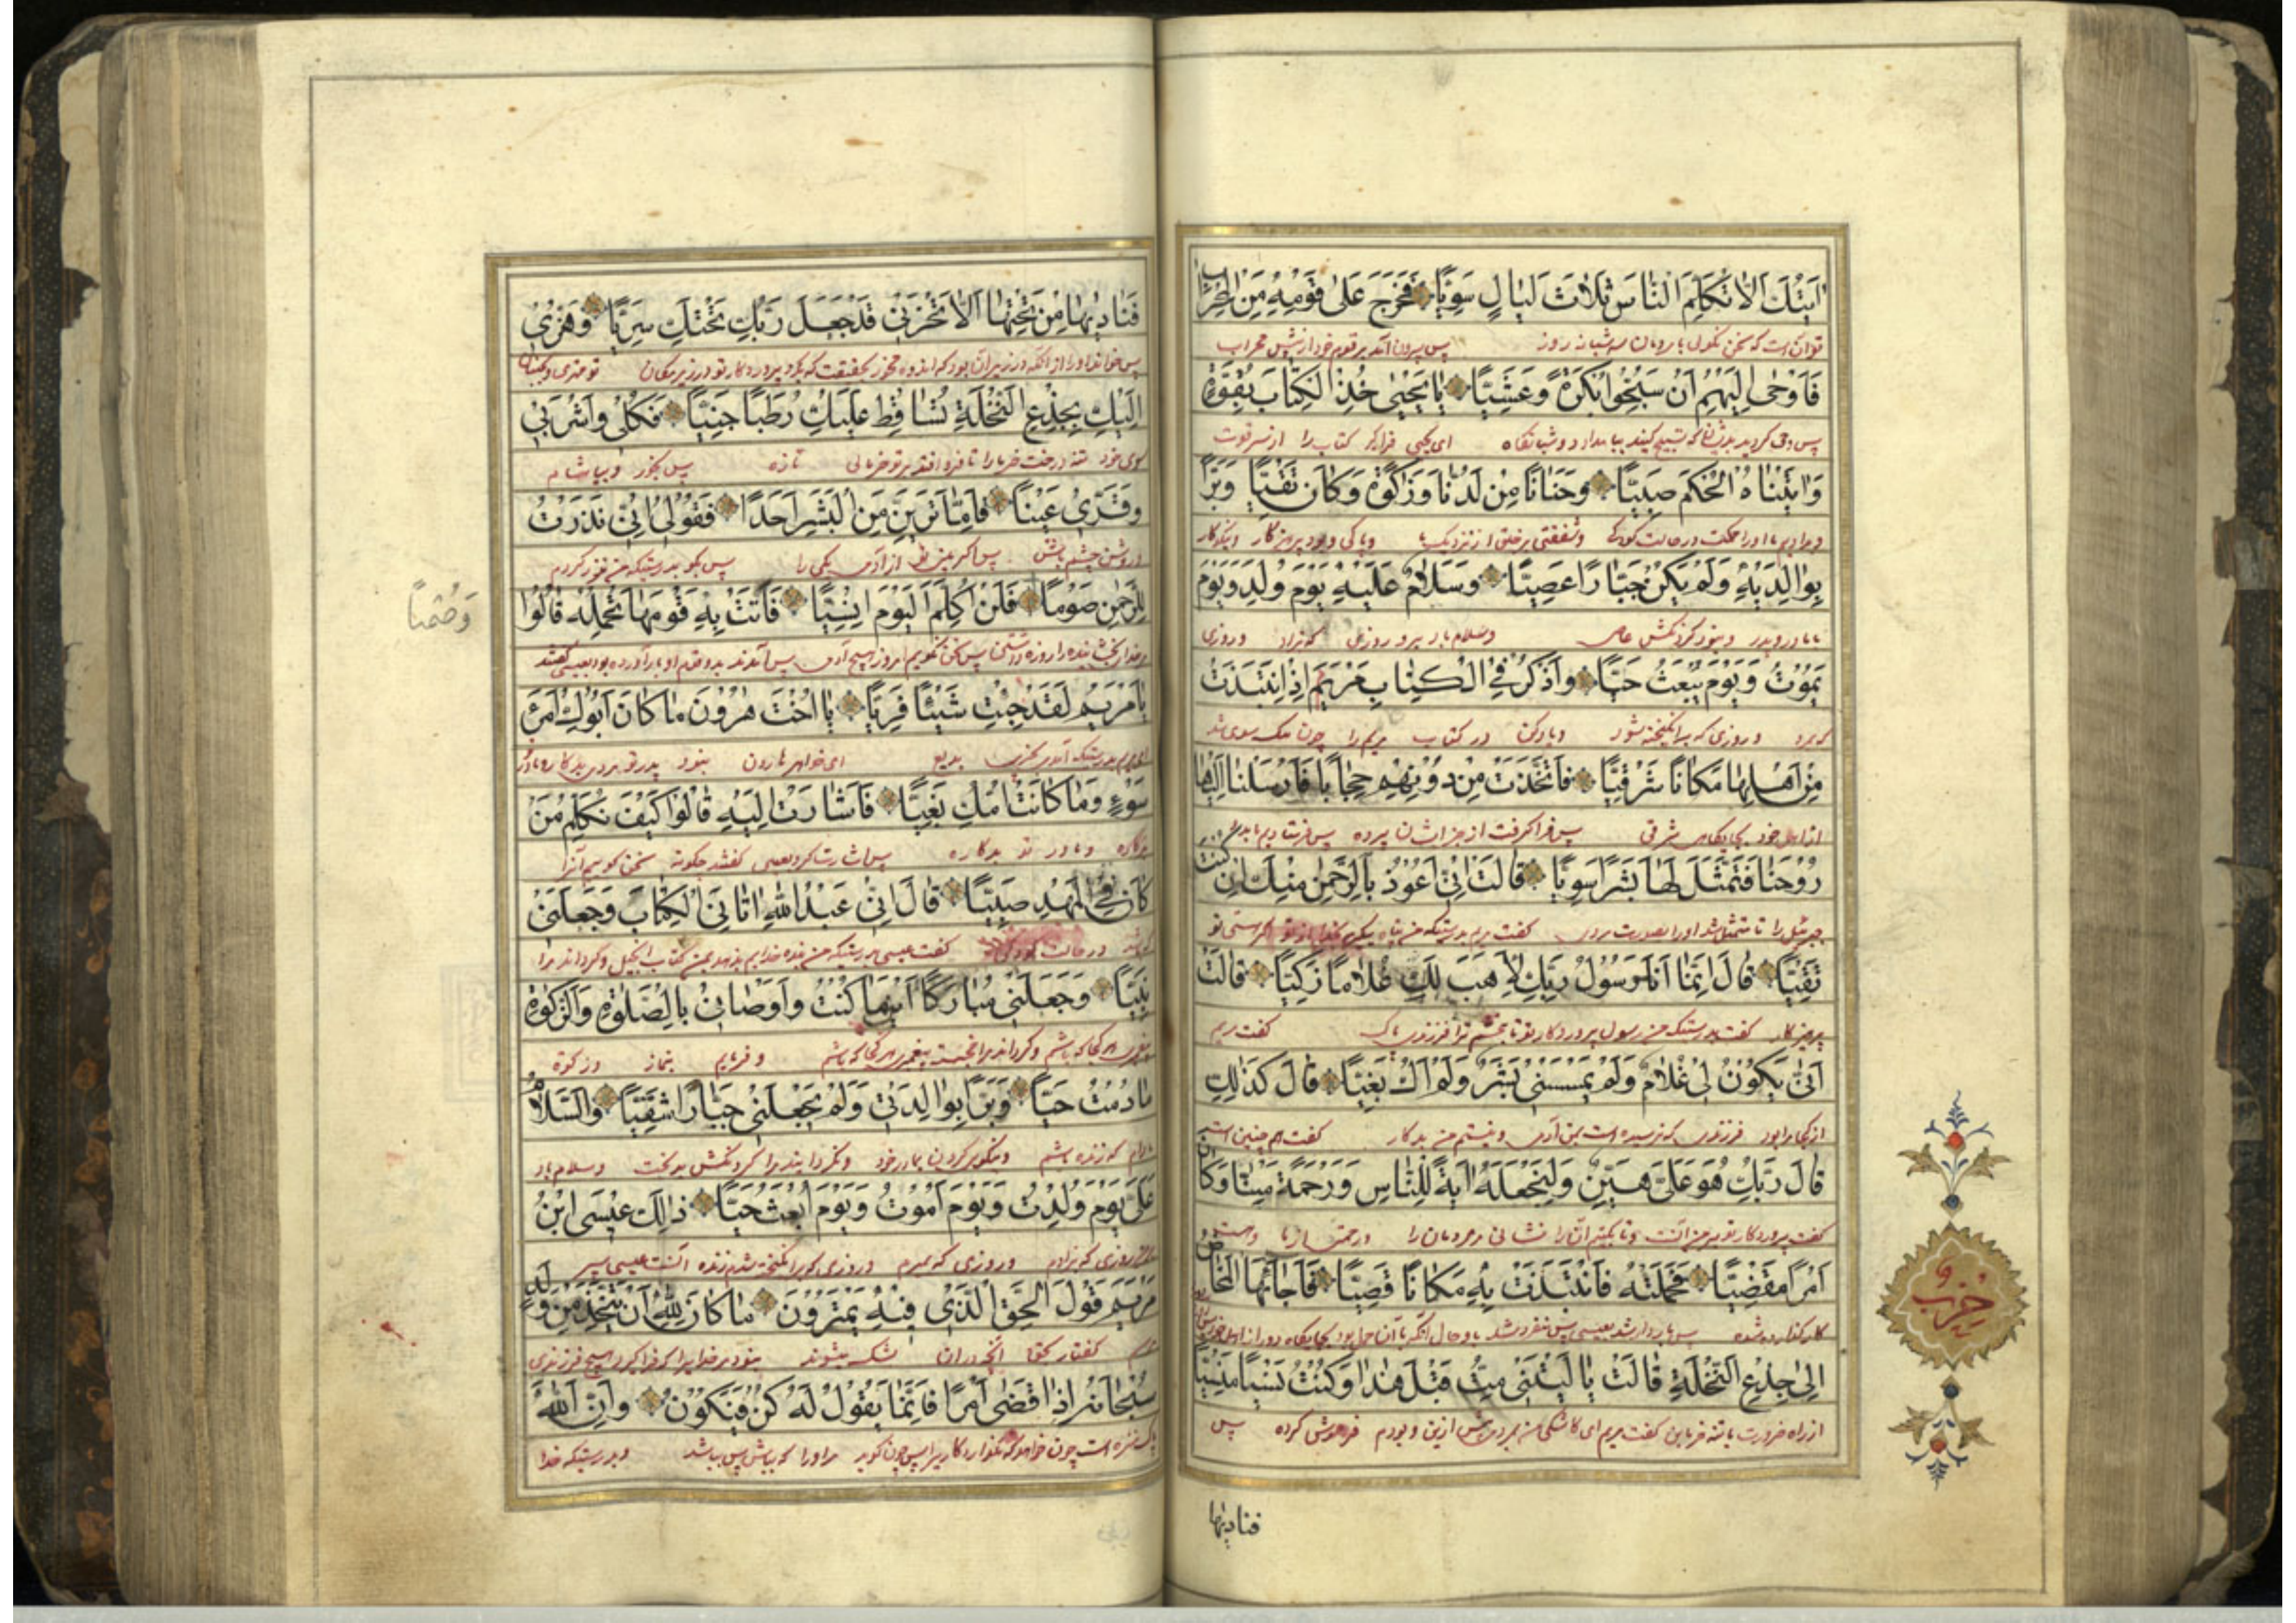 اٰیَتُكَ اَلّٰا تُكَلِّمَ النّٰاسَ ثَلٰاثَ لَیٰالٍ سَوِیًّا فَخَرَجَ عَلٰی قَوْمِهِ مِنَ الْمِحْرٰابِ
توآن است که سخن نکوئی با مردمان سه شبانه روز پس بیرون آمد بر قوم خود از پیش محراب
فَاَوْحٰی اِلَیْهِمْ اَنْ سَبِّحُوا بُكْرَةً وَعَشِیًّا یٰا یَحْیٰی خُذِ الْكِتٰابَ بِقُوَّةٍ
پس وحی کرد بدیشان که تسبیح کنید بامداد و شبانکاه ای یحیی فراکیر کتاب را از سر قوت
وَاٰتَیْنٰاهُ الْحُكْمَ صَبِیًّا وَحَنٰانًا مِنْ لَدُنّٰا وَزَكٰوةً وَكٰانَ تَقِیًّا وَبَرًّا
و دادیم ما او را حکمت در حالت کودکی و شفقتی بر خلق از نزدیک ما و پاکی و بود پرهیزکار و نیکوکار
بِوٰالِدَیْهِ وَلَمْ یَكُنْ جَبّٰارًا عَصِیًّا وَسَلٰامٌ عَلَیْهِ یَوْمَ وُلِدَ وَیَوْمَ
بمادر و پدر و نبود کردنکش عاصی و سلام باد برو روزی که زاد و روزی
یَمُوْتُ وَیَوْمَ یُبْعَثُ حَیًّا وَاذْكُرْ فِی الْكِتٰابِ مَرْیَمَ اِذِ انْتَبَذَتْ
که میرد و روزی که برانکیخته شود و یاد کن در کتاب مریم را چون یکسوی شد
مِنْ اَهْلِهٰا مَكٰانًا شَرْقِیًّا فَاتَّخَذَتْ مِنْ دُوْنِهِمْ حِجٰابًا فَاَرْسَلْنٰا اِلَیْهٰا
از اهل خود بجایکاهی شرقی پس فرا کرفت از جز ایشان پرده پس فرستادیم ما بدو
رُوْحَنٰا فَتَمَثَّلَ لَهٰا بَشَرًا سَوِیًّا قٰالَتْ اِنِّی اَعُوْذُ بِالرَّحْمٰنِ مِنْكَ اِنْ كُنْتَ
جبرئیل را تا متمثل شد او را بصورت مردی کفت مریم بدرستیکه من پناه میکیرم بخدا از تو اکر هستی تو
تَقِیًّا قٰالَ اِنَّمٰا اَنَا رَسُوْلُ رَبِّكِ لِاَهَبَ لَكِ غُلٰامًا زَكِیًّا قٰالَتْ
پرهیزکار کفت بدرستیکه من رسول پروردکار تو تا بخشم ترا فرزندی پاک کفت مریم
اَنّٰی یَكُوْنُ لِی غُلٰامٌ وَلَمْ یَمْسَسْنِی بَشَرٌ وَلَمْ اَكُ بَغِیًّا قٰالَ كَذٰلِكِ
از کجا مرا بود فرزندی که نرسیده است بمن آدمی و نیستم من بدکار کفت همچنین است
قٰالَ رَبُّكِ هُوَ عَلَیَّ هَیِّنٌ وَلِنَجْعَلَهُ اٰیَةً لِلنّٰاسِ وَرَحْمَةً مِنّٰا وَكٰانَ
کفت پروردکار تو بر من آنست و تا بکنیم آن را نشانی مر مردمان را و رحمتی از ما و هست
اَمْرًا مَقْضِیًّا فَحَمَلَتْهُ فَانْتَبَذَتْ بِهِ مَكٰانًا قَصِیًّا فَاَجٰآءَهَا الْمَخٰاضُ
کار کذارده شده پس باردار شد بعیسی پس منفرد شد با و حال آنکه با آن حمل بود بجایکاه دور از اهل خود
اِلٰی جِذْعِ النَّخْلَةِ قٰالَتْ یٰا لَیْتَنِی مِتُّ قَبْلَ هٰذٰا وَكُنْتُ نَسْیًا مَنْسِیًّا
از راه ضرورت با تنه خرمابن کفت مریم ای کاشکی من بمردمی پیش ازین و بودم فرموش کرده پس
فنادیٰها
حزب
فَنٰادٰیهٰا مِنْ تَحْتِهٰا اَلّٰا تَحْزَنِی قَدْ جَعَلَ رَبُّكِ تَحْتَكِ سَرِیًّا وَهُزِّی
پس خواند او را از آنکه در زیر آن بود که اندوه مخور بحقیقت که کرد پروردکار تو در زیر مکان تو نهری و بجنبان
اِلَیْكِ بِجِذْعِ النَّخْلَةِ تُسٰاقِطْ عَلَیْكِ رُطَبًا جَنِیًّا فَكُلِی وَاشْرَبِی
سوی خود تنه درخت خرما را تا فرو افتد بر تو خرمائی تازه پس بخور و بیاشام
وَقَرِّی عَیْنًا فَاِمّٰا تَرَیِنَّ مِنَ الْبَشَرِ اَحَدًا فَقُوْلِی اِنِّی نَذَرْتُ
و روشن چشم باش پس اکر بینی از آدمی یکی را پس بکو بدرستیکه من نذر کردم
لِلرَّحْمٰنِ صَوْمًا فَلَنْ اُكَلِّمَ الْیَوْمَ اِنْسِیًّا فَاَتَتْ بِهِ قَوْمَهٰا تَحْمِلُهُ قٰالُوْا
وَصُمتاً
مر خدای بخشاینده را روزه داشتن پس سخن نکویم امروز هیچ آدمی پس آمدند بدو قوم او بار آورده بود بعیسی کفتند
یٰا مَرْیَمُ لَقَدْ جِئْتِ شَیْئًا فَرِیًّا یٰا اُخْتَ هٰرُوْنَ مٰا كٰانَ اَبُوْكِ امْرَءَ
ای مریم بدرستیکه آمدی بچیزی بدیع ای خواهر هارون نبود پدر تو مردی بدکار و نابکار
سَوْءٍ وَمٰا كٰانَتْ اُمُّكِ بَغِیًّا فَاَشٰارَتْ اِلَیْهِ قٰالُوْا كَیْفَ نُكَلِّمُ مَنْ
و مادر تو بدکاره پس اشارت کرد بعیسی کفتند چکونه سخن کوییم آنرا
كٰانَ فِی الْمَهْدِ صَبِیًّا قٰالَ اِنِّی عَبْدُ اللّٰهِ اٰتٰانِیَ الْكِتٰابَ وَجَعَلَنِی
که باشد در حالت کودکی کفت عیسی بدرستیکه من بنده خدایم بدهد بمن کتاب انجیل و کرداند مرا
نَبِیًّا وَجَعَلَنِی مُبٰارَكًا اَیْنَمٰا كُنْتُ وَاَوْصٰانِی بِالصَّلٰوةِ وَالزَّكٰوةِ
هر کجا که باشم و فرمایم بنماز و زکوة
مٰا دُمْتُ حَیًّا وَبَرًّا بِوٰالِدَتِی وَلَمْ یَجْعَلْنِی جَبّٰارًا شَقِیًّا وَالسَّلٰامُ
مادام که زنده باشم و نیکوئی کردن با مادر خود و نکرداند مرا کردنکش بدبخت و سلام باد
عَلَیَّ یَوْمَ وُلِدْتُ وَیَوْمَ اَمُوْتُ وَیَوْمَ اُبْعَثُ حَیًّا ذٰلِكَ عِیْسَی ابْنُ
بر من روزی که بزادم و روزی که بمیرم و روزی که برانکیخته شدم زنده آنست عیسی پسر
مَرْیَمَ قَوْلَ الْحَقِّ الَّذِی فِیْهِ یَمْتَرُوْنَ مٰا كٰانَ لِلّٰهِ اَنْ یَتَّخِذَ مِنْ وَلَدٍ
مریم کفتار بحق آنچه در آن شک میشوند نبود مر خدا را که فرا کیرد هیچ فرزندی
سُبْحٰانَهُ اِذٰا قَضٰی اَمْرًا فَاِنَّمٰا یَقُوْلُ لَهُ كُنْ فَیَكُوْنُ وَاِنَّ اللّٰهَ
پاک و منزه است چون خواهد که بکذارد کاری را پس چون کوید مر او را که بباش پس بباشد و بدرستیکه خدا